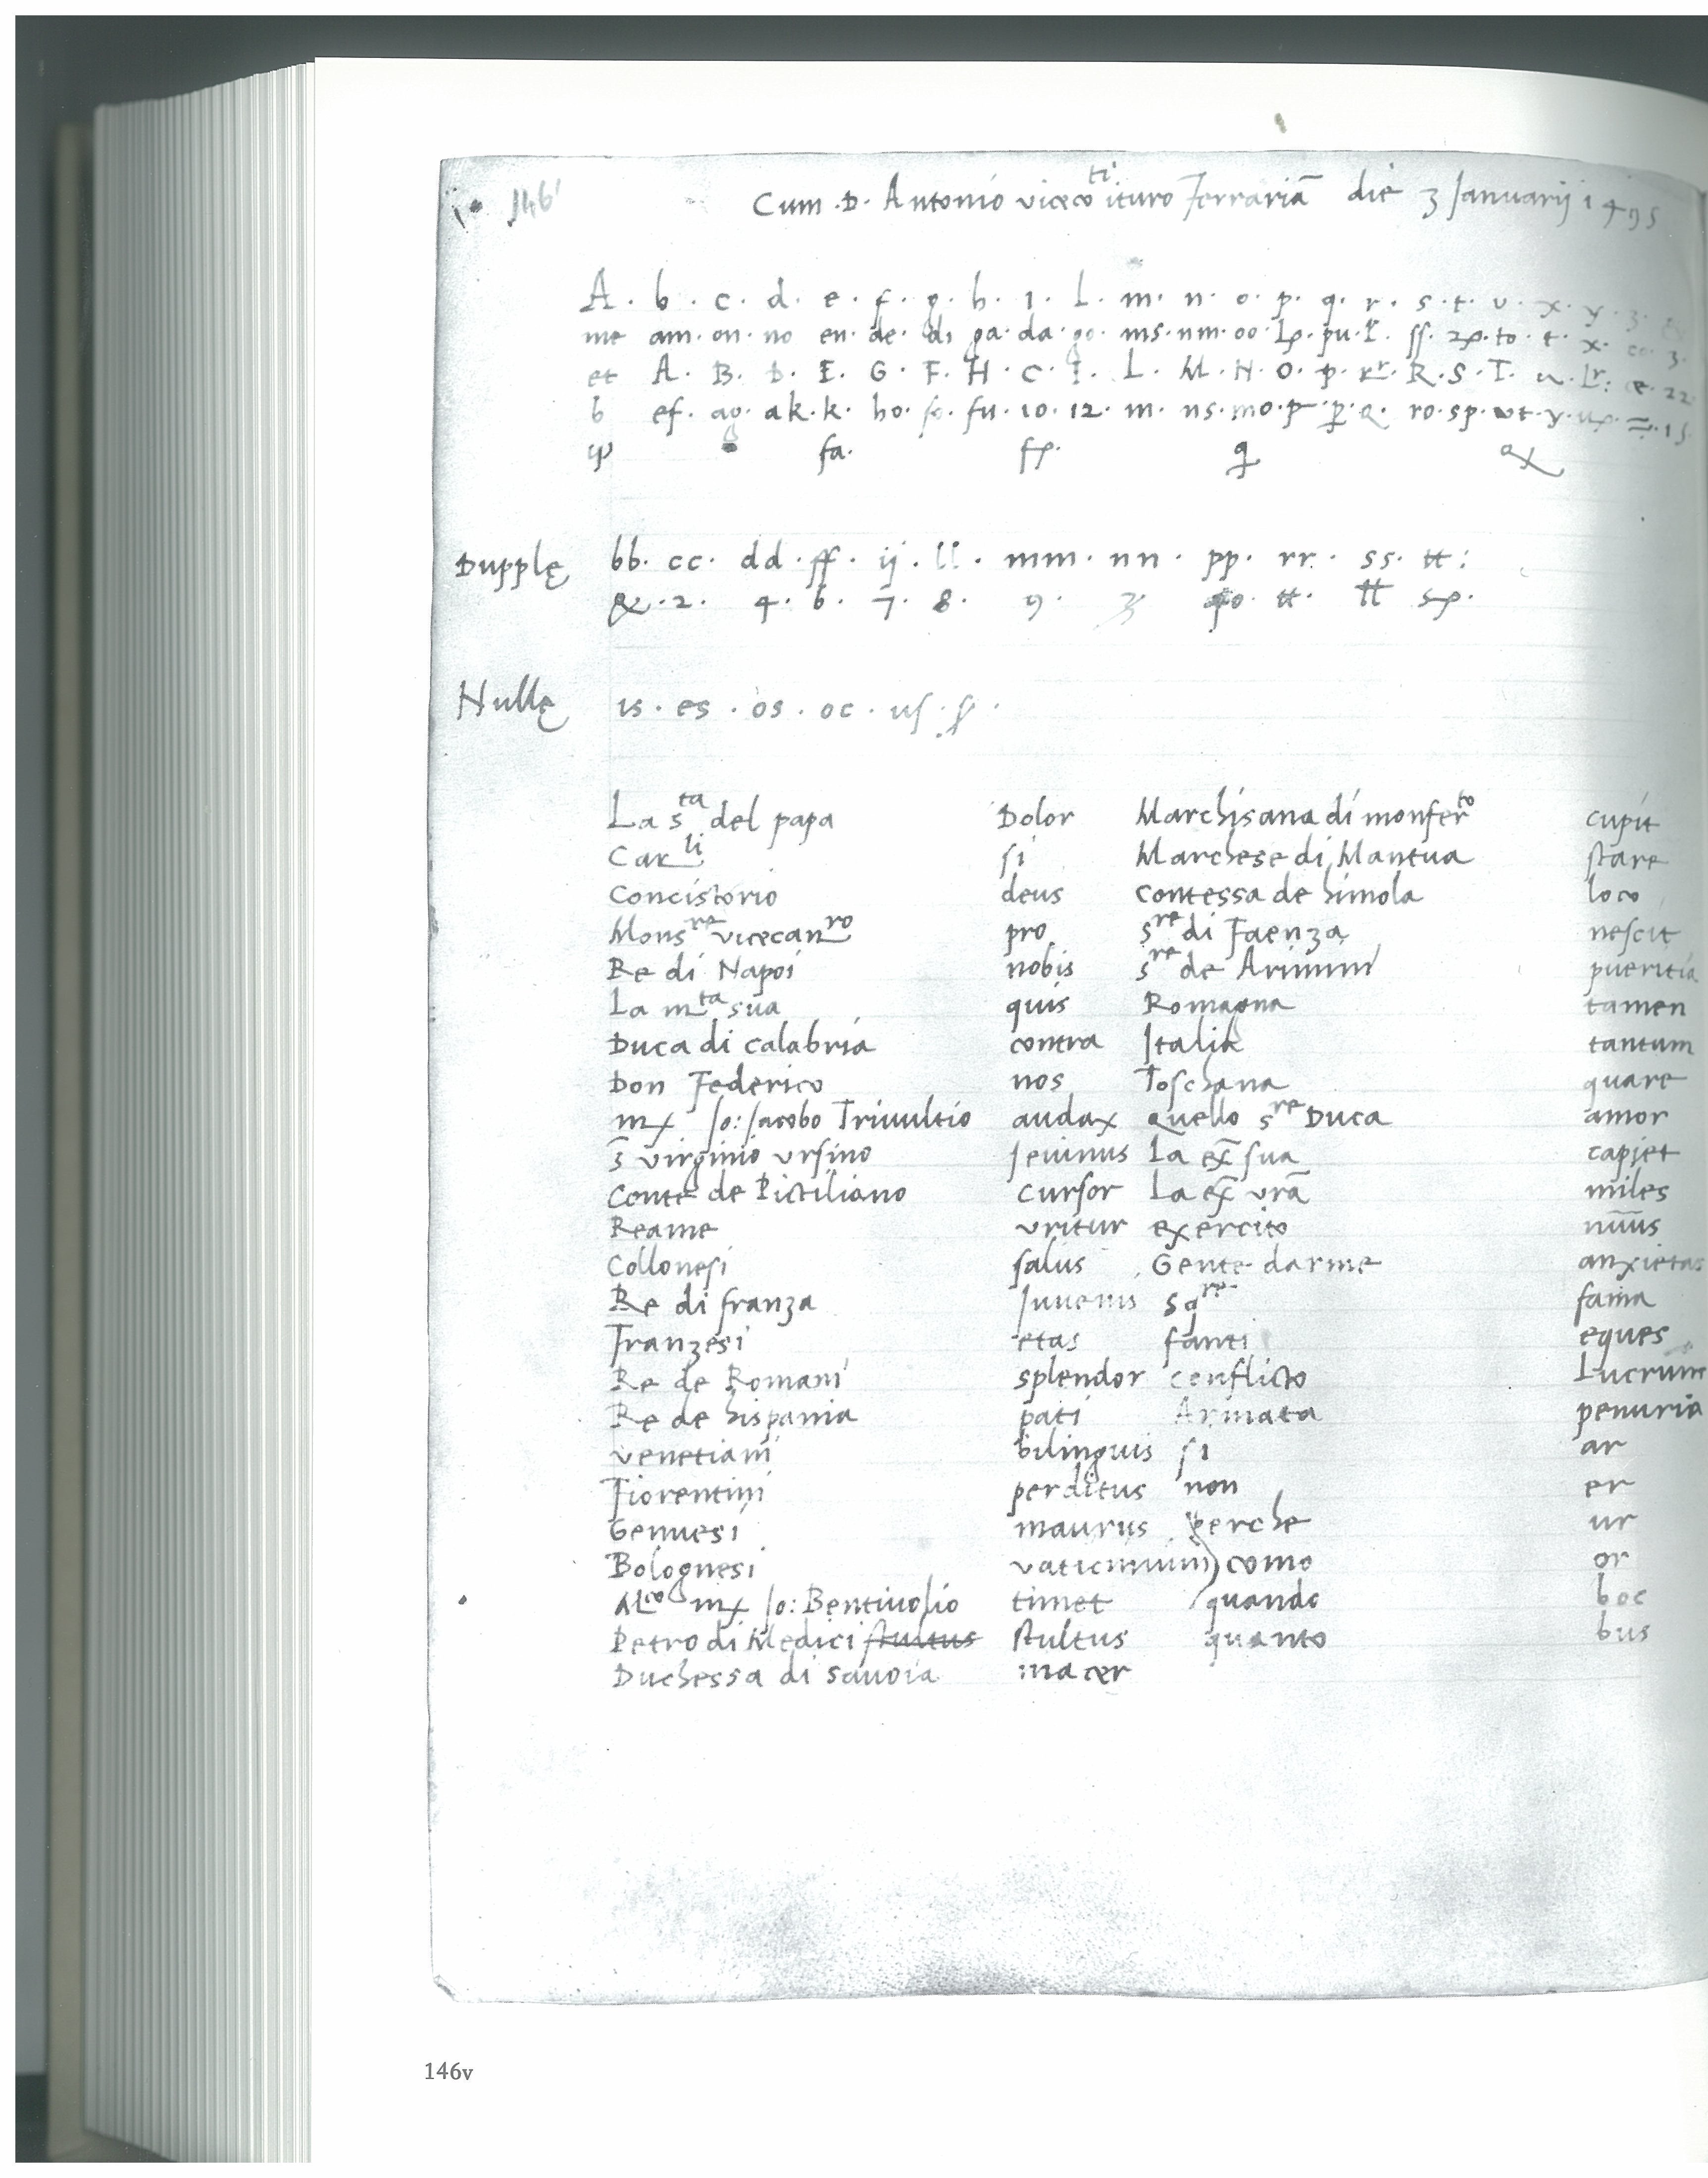 146
Cum .D. Antonio viceco^ti ituro Ferrariā die 3 Januarij 1495
A. b. c. d. e. f. g. h. i. L. m. n. o. p. q. r. s. t. v. x. y. 3.
me am. on. no en. de. di ga. da. go. ms. nm. oo. pu. ss. to. t. x. co. 3.
et A. B. D. E. G. F. H. C. I. L. M. N. O. p. R. S. T. 22
b ef. ag. ak. k. ho. fo. fu. 10. 12. m. ns. mo. ro. sp. vt. y. 15
fa.
Dupplę bb. cc. dd. ff. ij. ll. mm. nn. pp. rr. ss. tt:
2. 4. 6. 7. 8. 9. 3 tt.
Nullę is. es. os. oc. uſ.
La s^ta del papa Dolor Marchisana di monfer^to cupit
Car^li si Marchese di Mantua stare
Concistorio deus contessa de himola loco
Mons^re vicecan^ro pro s^re di Faenza nescit
Re di Napoi nobis s^re de Arimini pueritia
La m^ta sua quis Romagna tamen
Duca di calabria contra Italia tantum
Don Federico nos Toschana quare
mx Jo: Jacobo Triuultio audax quello s^re Duca amor
s̄ virginio vrsino Jeiunus La ex̄ sua capiet
Conte de Pictiliano cursor La ex̄ vrā miles
Reame vritur exercito nūus
Collonesi salus Gente darme anxietas
Re di franza Juuenis sq^re fama
Franzesi etas fanti eques
Re de Romani splendor conflicto Lucrum
Re de hispania pati Armata penuria
venetiani bilinguis si ar
Fiorentini perditus non er
Genuesi maurus perche ur
Bolognesi vaticinium como or
M^co mx Jo: Bentiuolio timet quando hoc
Petro di Medici stultus stultus quanto bus
Duchessa di sauoia macer
146v